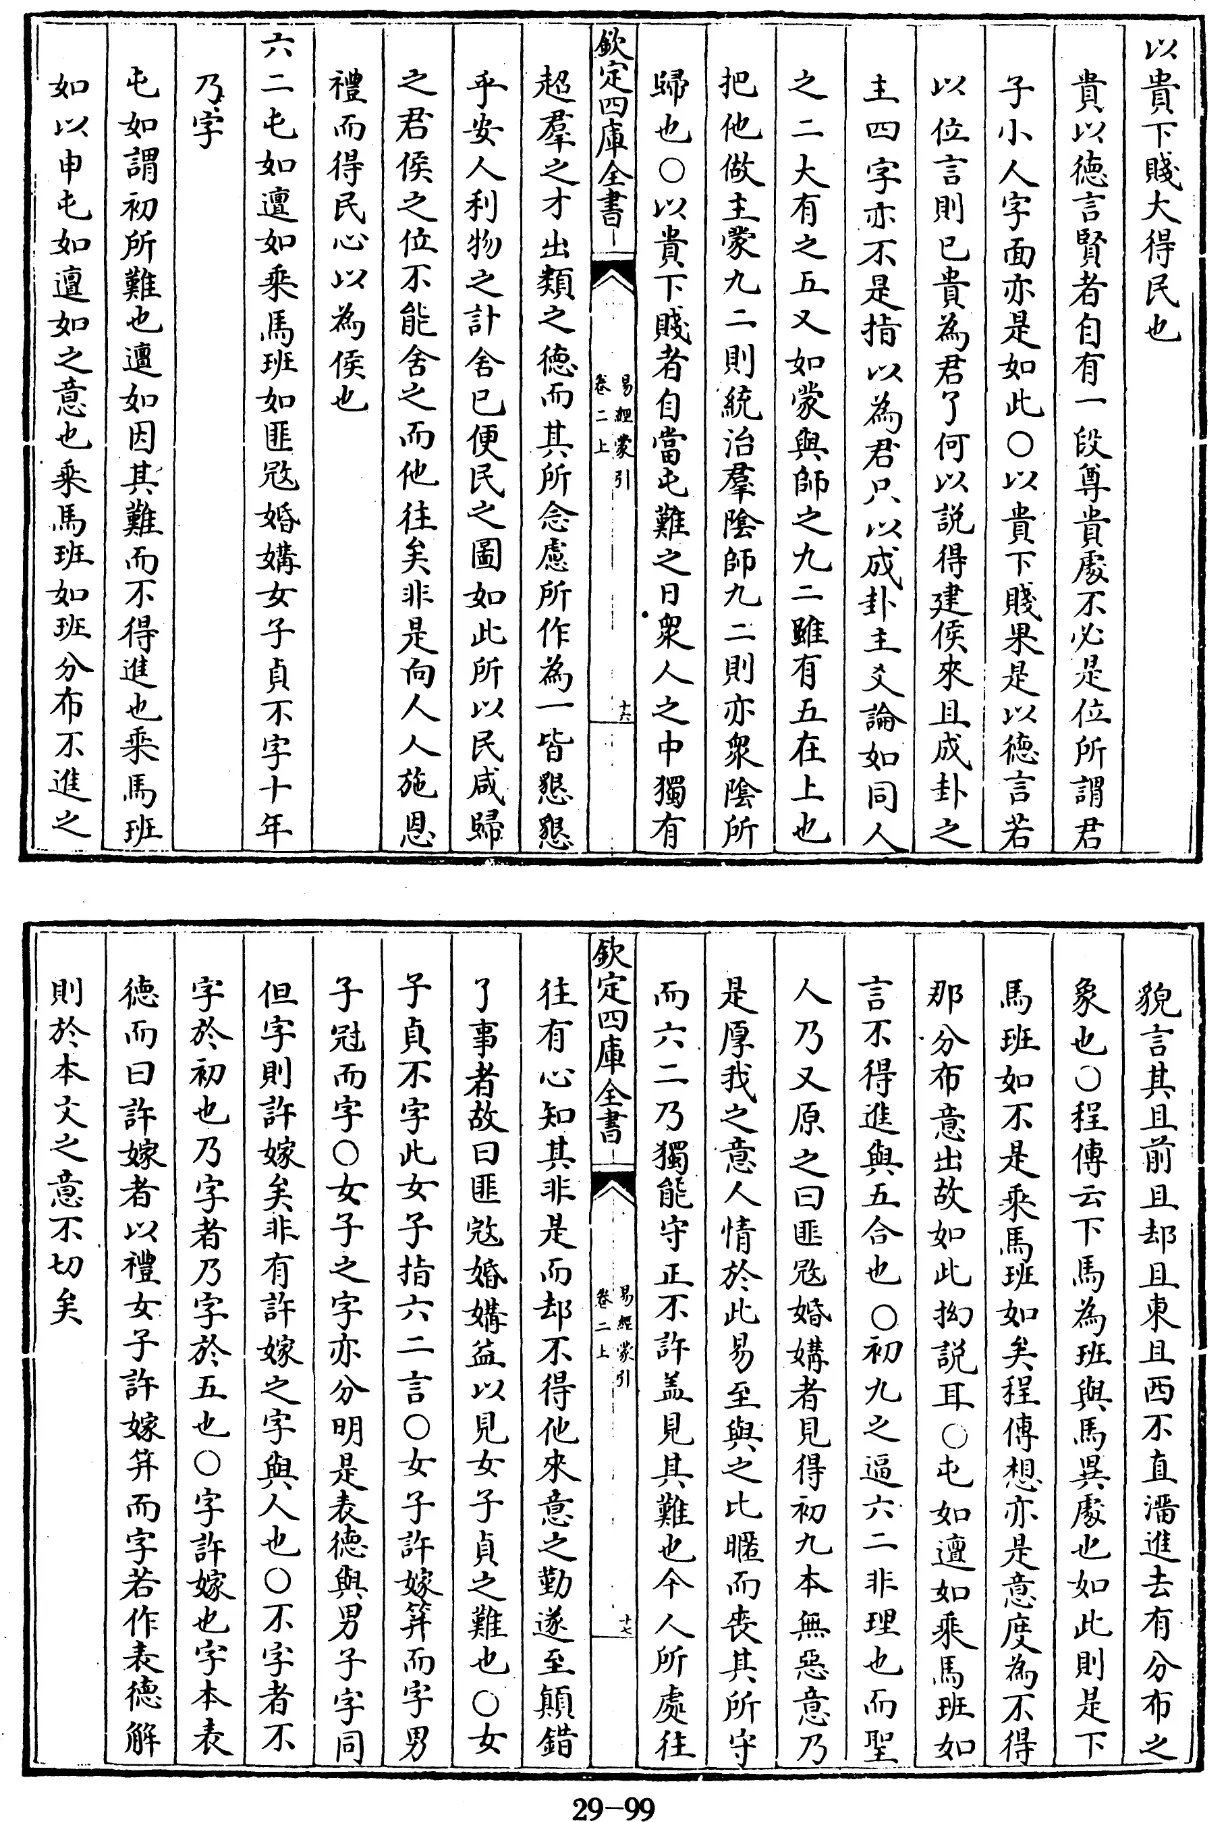 以貴下賤大得民也
貴以德言賢者自有一段尊貴處不必是位所謂君
子小人字面亦是如此○以貴下賤果是以德言若
以位言則已貴為君了何以說得建侯來且成卦之
主四字亦不是指以為君只以成卦主爻論如同人
之二大有之五又如蒙與師之九二雖有五在上也
把他做主蒙九二則統治羣陰師九二則亦衆陰所
歸也○以貴下賤者自當屯難之日衆人之中獨有
欽定四庫全書
易經蒙引
卷二上
十六
超羣之才出類之德而其所念慮所作為一皆懇懇
乎安人利物之計舍已便民之圖如此所以民咸歸
之君侯之位不能舍之而他往矣非是向人人施恩
禮而得民心以為侯也
六二屯如邅如乘馬班如匪冦婚媾女子貞不字十年
乃字
屯如謂初所難也邅如因其難而不得進也乘馬班
如以申屯如邅如之意也乘馬班如班分布不進之
貌言其且前且却且東且西不直濳進去有分布之
象也○程傳云下馬為班與馬異處也如此則是下
馬班如不是乘馬班如矣程傳想亦是意度為不得
那分布意出故如此拗說耳○屯如邅如乘馬班如
言不得進與五合也○初九之逼六二非理也而聖
人乃又原之曰匪冦婚媾者見得初九本無惡意乃
是厚我之意人情於此易至與之比暱而喪其所守
而六二乃獨能守正不許盖見其難也今人所處往
欽定四庫全書
易經蒙引
卷二上
十七
往有心知其非是而却不得他來意之勤遂至顛錯
了事者故曰匪冦婚媾益以見女子貞之難也○女
子貞不字此女子指六二言○女子許嫁笄而字男
子冠而字○女子之字亦分明是表德與男子字同
但字則許嫁矣非有許嫁之字與人也○不字者不
字於初也乃字者乃字於五也○字許嫁也字本表
德而曰許嫁者以禮女子許嫁笄而字若作表德解
則於本文之意不切矣
29-99